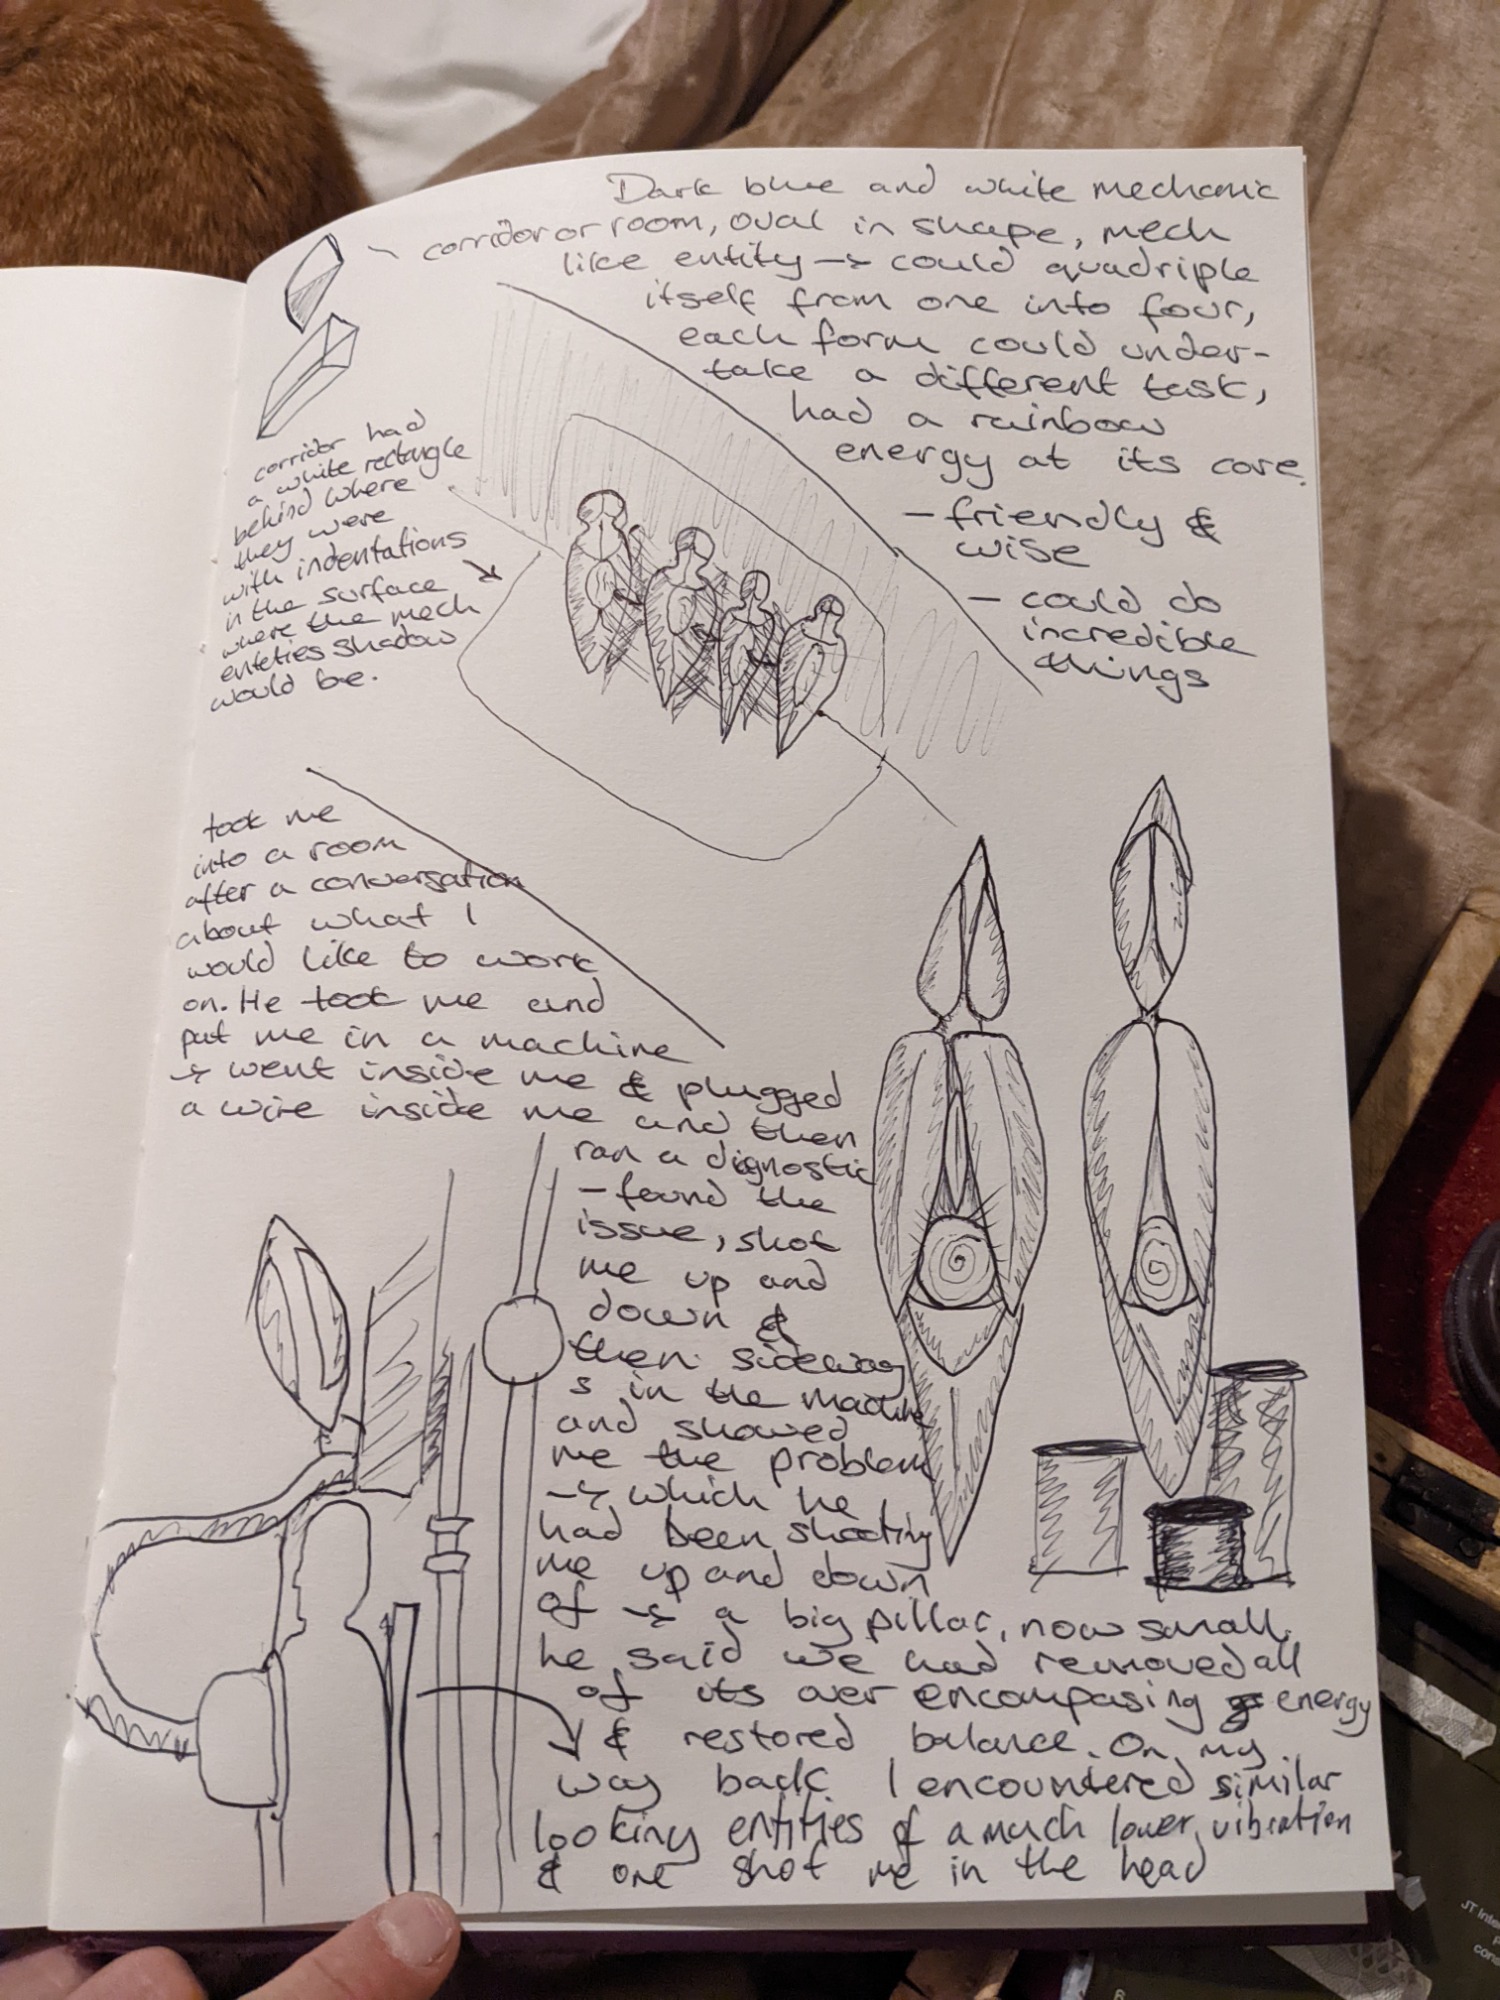 Dark blue and white mechanic
corridor or room, oval in shape, mech
like entity → could quadriple
itself from one into four,
each form could under-
take a different task,
had a rainbow
energy at its core.
- friendly &
wise
- could do
incredible
things
corridor had
a white rectangle
behind where
they were
with indentations
in the surface
where the mech
enteties shadow
would be.
took me
into a room
after a conversation
about what I
would like to work
on. He took me and
put me in a machine
→ went inside me & plugged
a wire inside me and then
ran a dignostic
- found the
issue, shot
me up and
down &
then sideway
s in the machine
and showed
me the problem
→ which he
had been shooting
me up and down
of → a big pillar, now small.
he said we had removed all
of its over encompasing energy
& restored balance. On my
way back I encountered similar
looking entities of a much lower vibration
& one shot me in the head
JT Inte